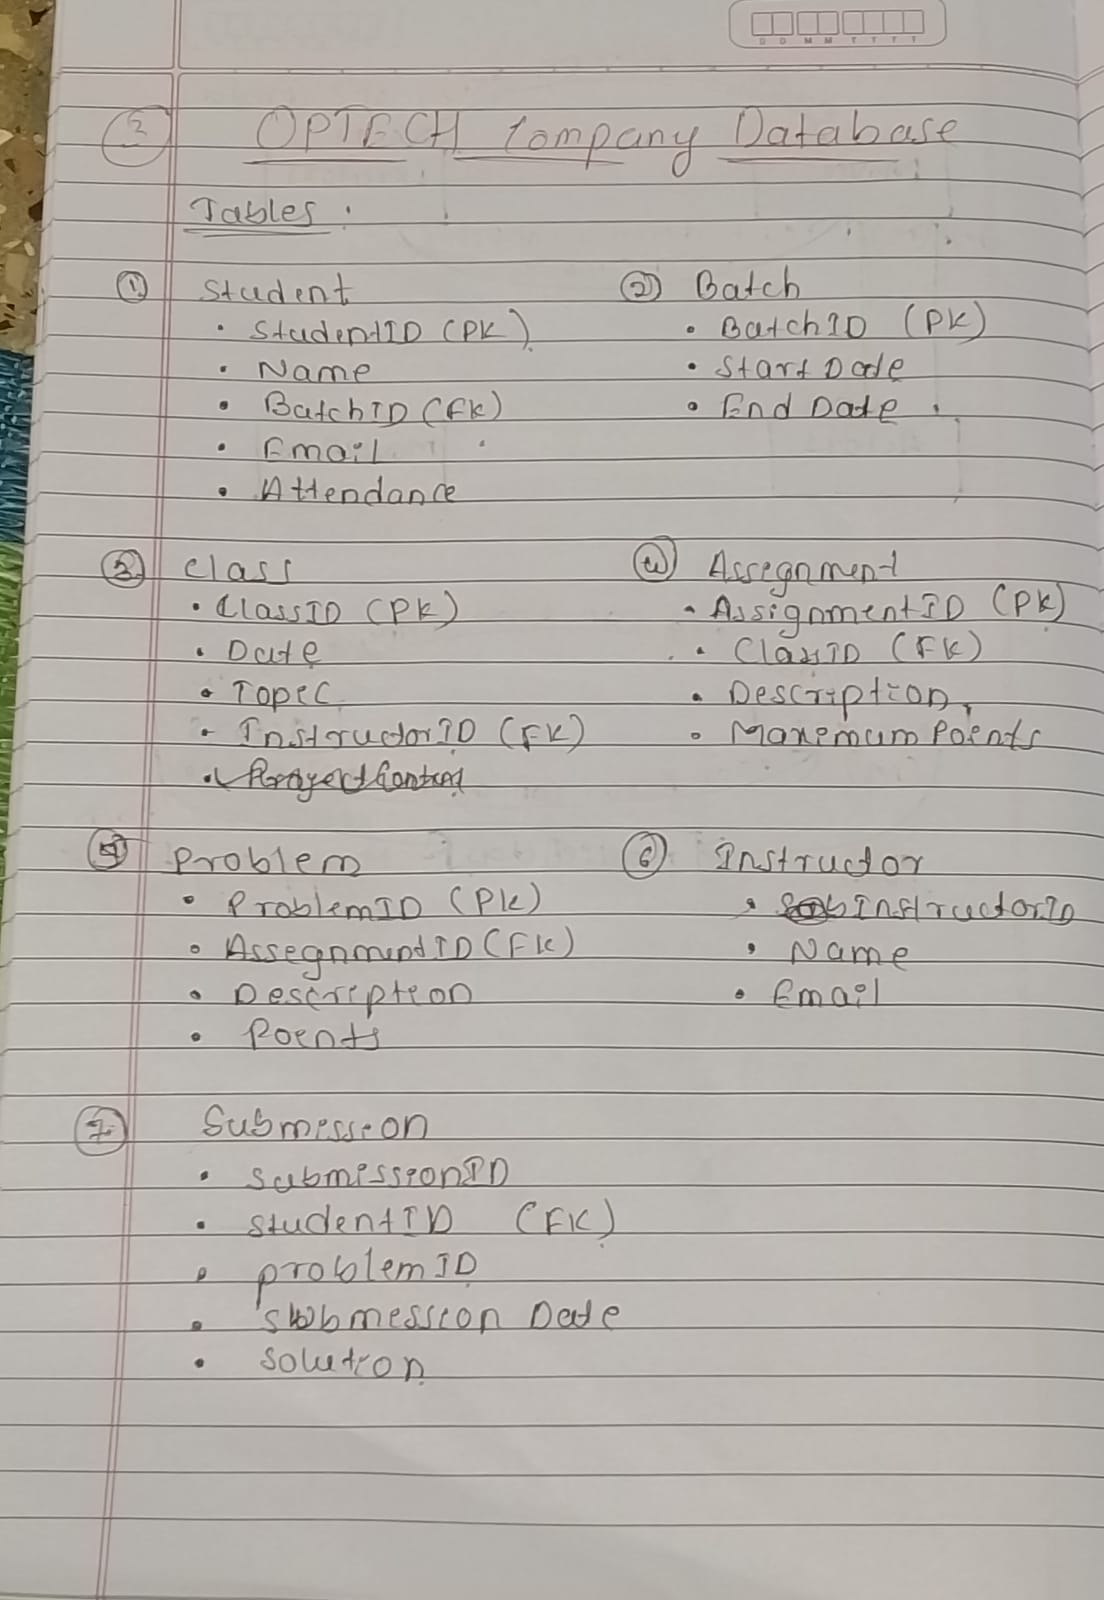 D D M M Y Y Y Y
2 OPTECH Company Database
Tables :
① Student
• StudentID (PK)
• Name
• BatchID (FK)
• Email
• Attendance
② Batch
• BatchID (PK)
• Start Date
• End Date
③ Class
• ClassID (PK)
• Date
• Topic
• InstructorID (FK)
④ Assignment
• AssignmentID (PK)
• ClassID (FK)
• Description
• Maximum Points
⑤ Problem
• ProblemID (PK)
• AssignmentID (FK)
• Description
• Points
⑥ Instructor
• InstructorID
• Name
• Email
⑦ Submission
• SubmissionID
• StudentID (FK)
• problemID
• submission Date
• Solution